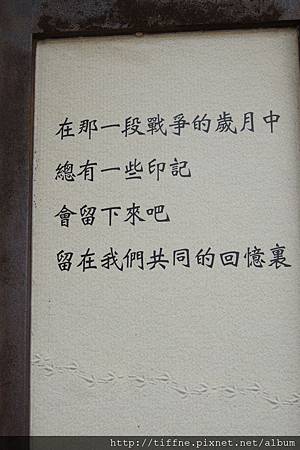 在那一段戰爭的歲月中
總有一些印記
會留下來吧
留在我們共同的回憶裏
http://tiffne.pixnet.net/album